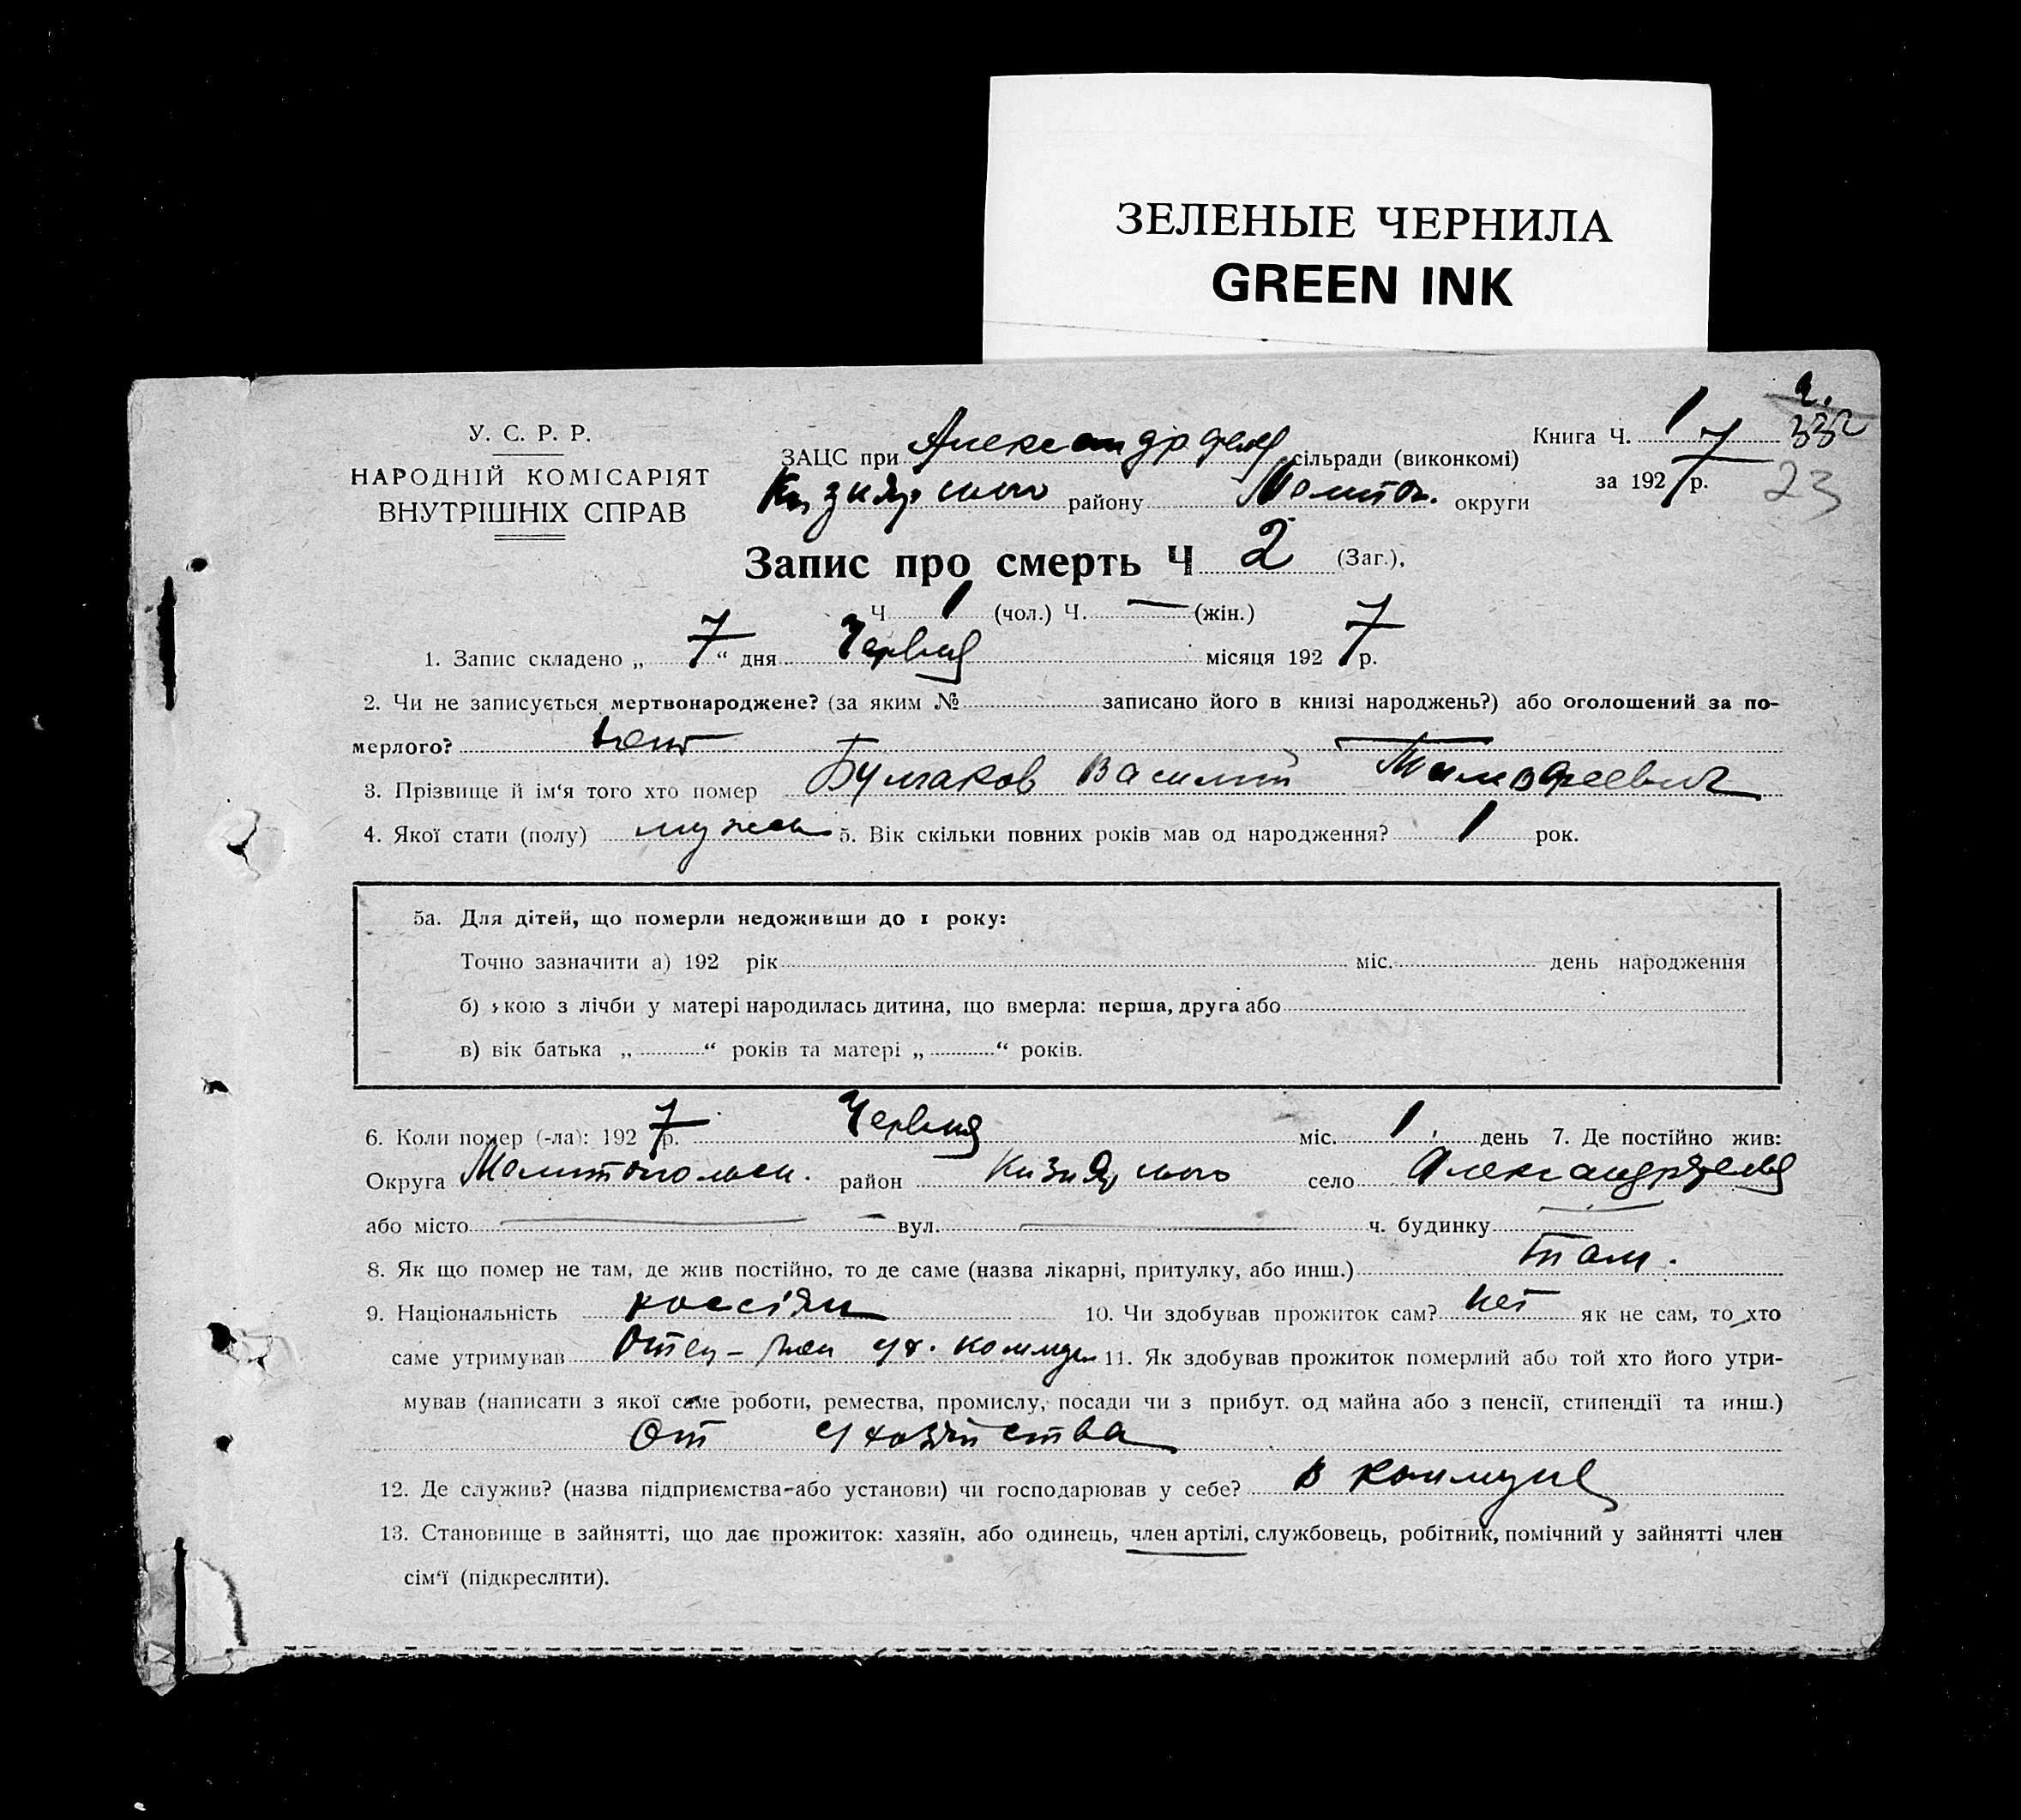 ЗЕЛЕНЫЕ ЧЕРНИЛА
GREEN INK
У. С. Р. Р.
НАРОДНІЙ КОМІСАРІЯТ
ВНУТРІШНІХ СПРАВ
ЗАЦС при Александрфельд сільради (виконкомі)
району Мелитоп. округи
Книга Ч. 1
за 1927 р.
332
23
Запис про смерть Ч 2 (Заг.),
Ч 1 (чол.) Ч. — (жін.)
1. Запис складено „ 7 “ дня Червня місяця 1927 р.
2. Чи не записується мертвонароджене? (за яким № записано його в книзі народжень?) або оголошений за по-
мерлого? нет
3. Прізвище й ім‘я того хто помер Булгаков Василий Тимофеевич
4. Якої стати (полу) мужск 5. Вік скільки повних років мав од народження? 1 рок.
5а. Для дітей, що померли недоживши до 1 року:
Точно зазначити а) 192 рік міс. день народження
б) якою з лічби у матері народилась дитина, що вмерла: перша, друга або
в) вік батька „ “ років та матері „ “ років.
6. Коли помер (-ла): 1927 р. Червня міс. 1 день 7. Де постійно жив:
Округа Мелитопольск. район село Александрфельд
або місто — вул. — ч. будинку —
8. Як що помер не там, де жив постійно, то де саме (назва лікарні, притулку, або инш.) там.
9. Національність россіян 10. Чи здобував прожиток сам? нет як не сам, то хто
саме утримував Отец – 11. Як здобував прожиток померлий або той хто його утри-
мував (написати з якої саме роботи, ремества, промислу, посади чи з прибут. од майна або з пенсії, стипендії та инш.)
От хозяйства
12. Де служив? (назва підприємства-або установи) чи господарював у себе? в коммуне
13. Становище в зайнятті, що дає прожиток: хазяїн, або одинець, член артілі, службовець, робітник, помічний у зайнятті член
сім‘ї (підкреслити).